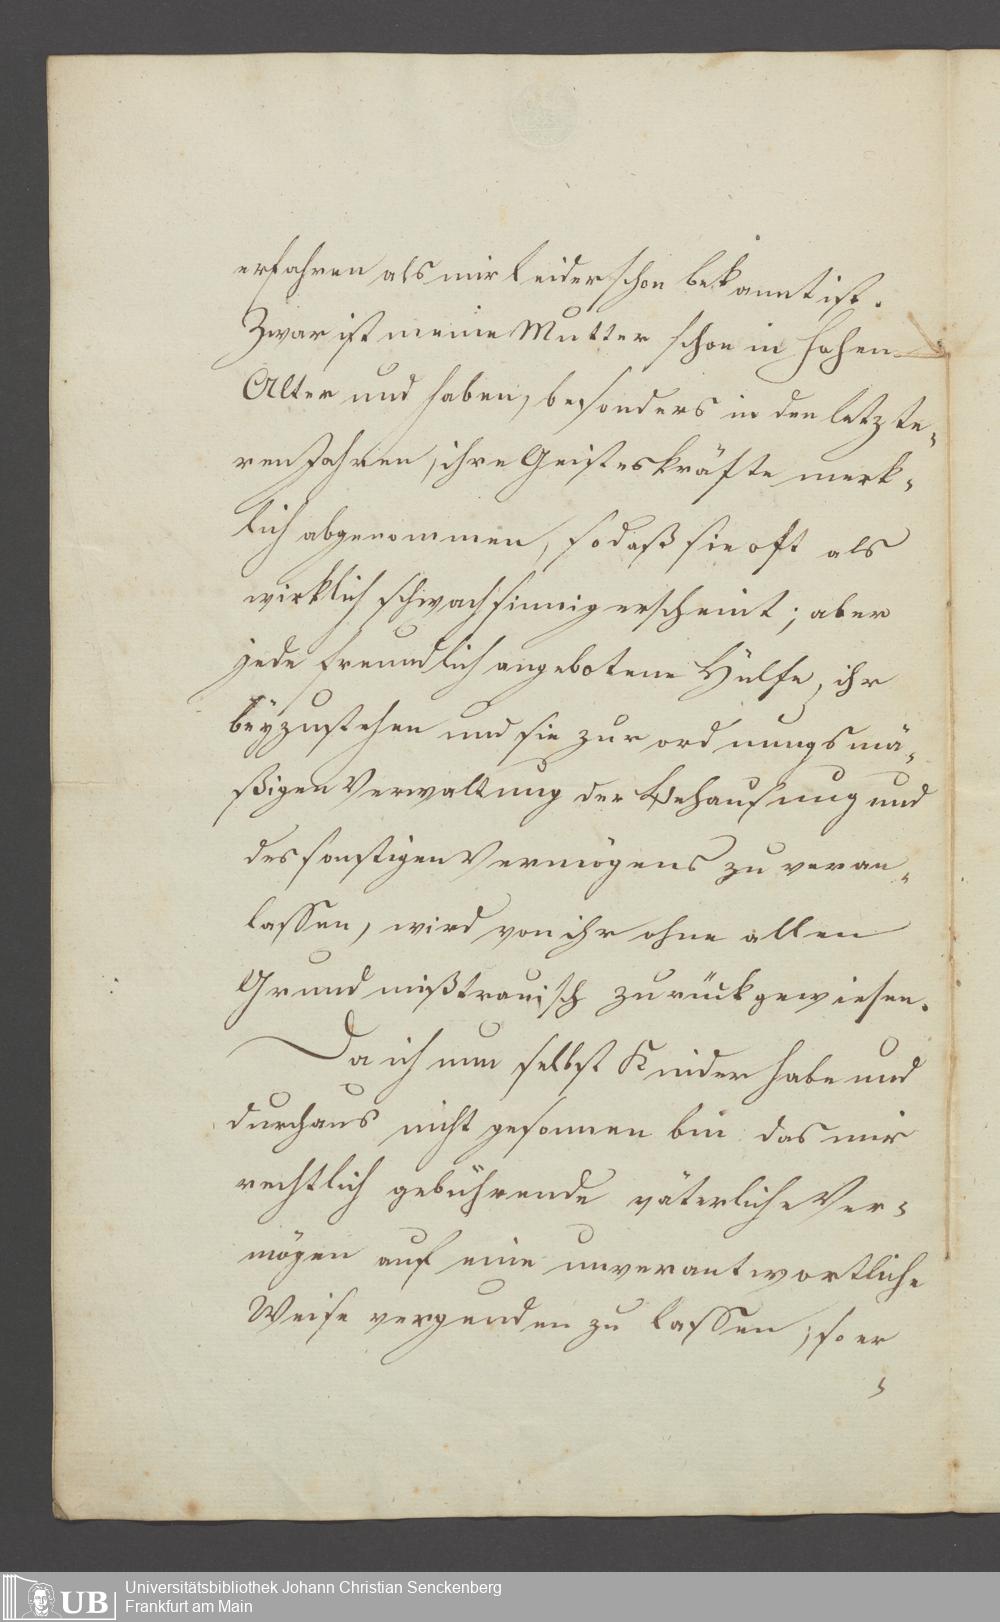 erfahren als mir leider schon bekannt ist.
Zwar ist meine Mutter schon in hohen
Alter und haben, besonders in den letzte-
ren Jahren, ihre Geisteskräfte merk-
lich abgenommen, so daß sie oft als
wirklich schwachsinnig erscheint; aber
jede freundlich angebotene Hülfe, ihr
beÿzustehen und sie zur ordnungsmä-
ßigen Verwaltung der Behausung und
des sonstigen Vermögens zu veran-
lassen, wird von ihr ohne allen
Grund mißtrauisch zurückgewiesen.
Da ich nun selbst Kinder habe und
durchaus nicht gesonnen bin das mir
rechtlich gebührende väterliche Ver-
mögen auf eine unverantwortliche
Weise vergeuden zu lassen, so er
-
UB
Universitätsbibliothek Johann Christian Senckenberg
Frankfurt am Main